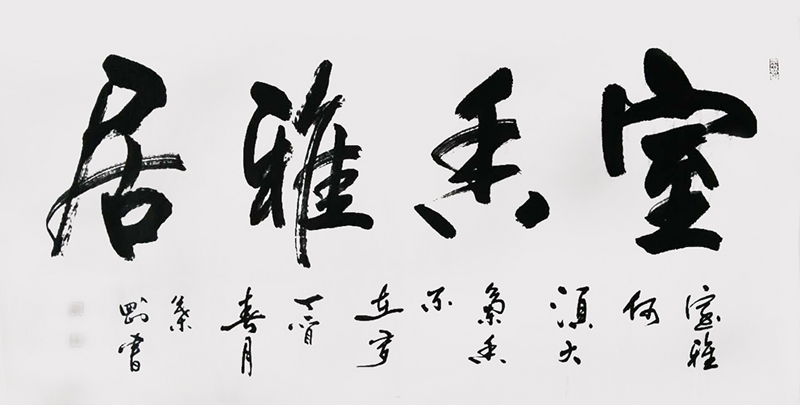 室香雅居
室雅
何
須大
香
不
在多
丁酉
春月
剛書